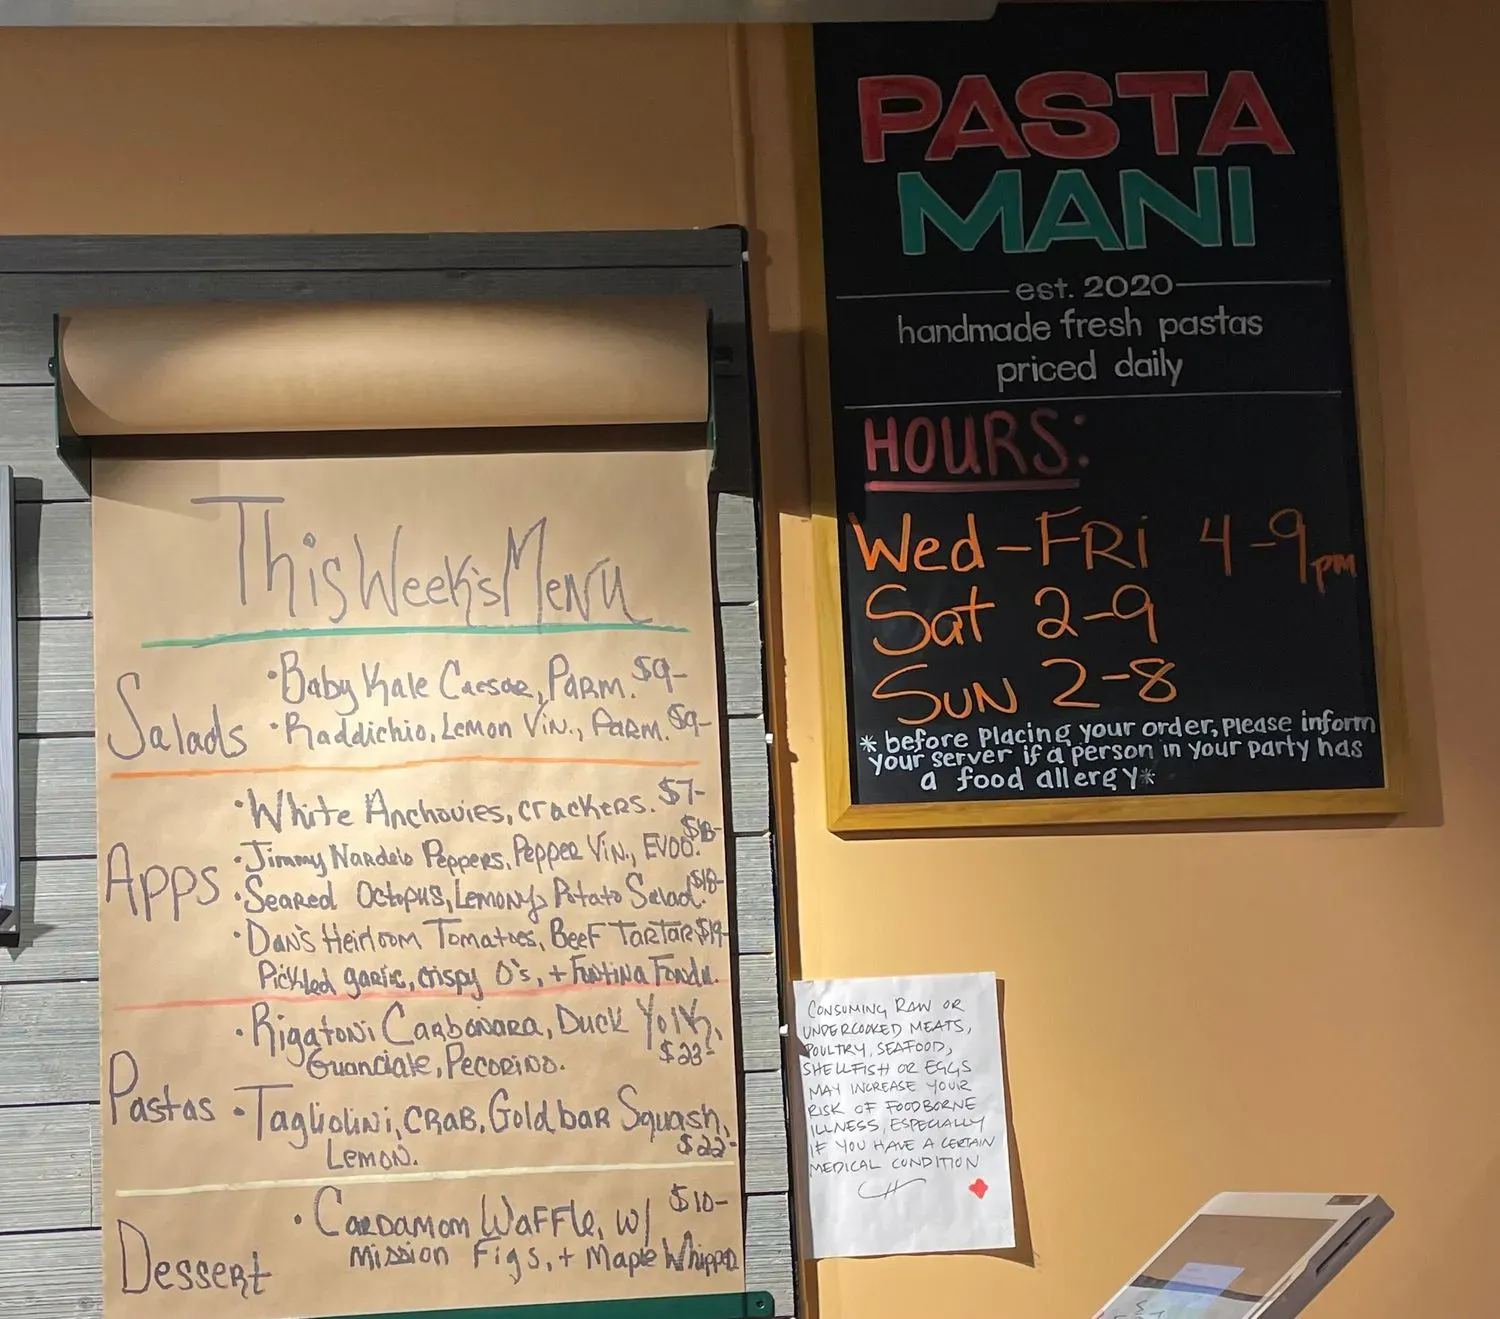 This Week's Menu
Salads
• Baby Kale Caesar, Parm. $9-
• Raddichio, Lemon Vin., Parm. $9-
Apps
• White Anchovies, crackers. $7-
• Jimmy Nardelo Peppers, Pepper Vin., EVOO.
• Seared Octopus, Lemony Potato Salad. $18-
• Dan's Heirloom Tomatoes, Beef Tartar $19-
Pickled garlic, crispy O's, + Funtina Fondu.
Pastas
• Rigatoni Carbonara, Duck Yolk,
Guanciale, Pecorino. $23-
• Tagliolini, Crab, Gold bar Squash,
Lemon. $22-
Dessert
• Cardamom Waffle, w/ $10-
Mission Figs, + Maple Whipped
PASTA
MANI
est. 2020
handmade fresh pastas
priced daily
HOURS:
Wed-FRi 4-9pm
Sat 2-9
Sun 2-8
* before placing your order, please inform
your server if a person in your party has
a food allergy*
CONSUMING RAW OR
UNDERCOOKED MEATS,
POULTRY, SEAFOOD,
SHELLFISH OR EGGS
MAY INCREASE YOUR
RISK OF FOODBORNE
ILLNESS, ESPECIALLY
IF YOU HAVE A CERTAIN
MEDICAL CONDITION